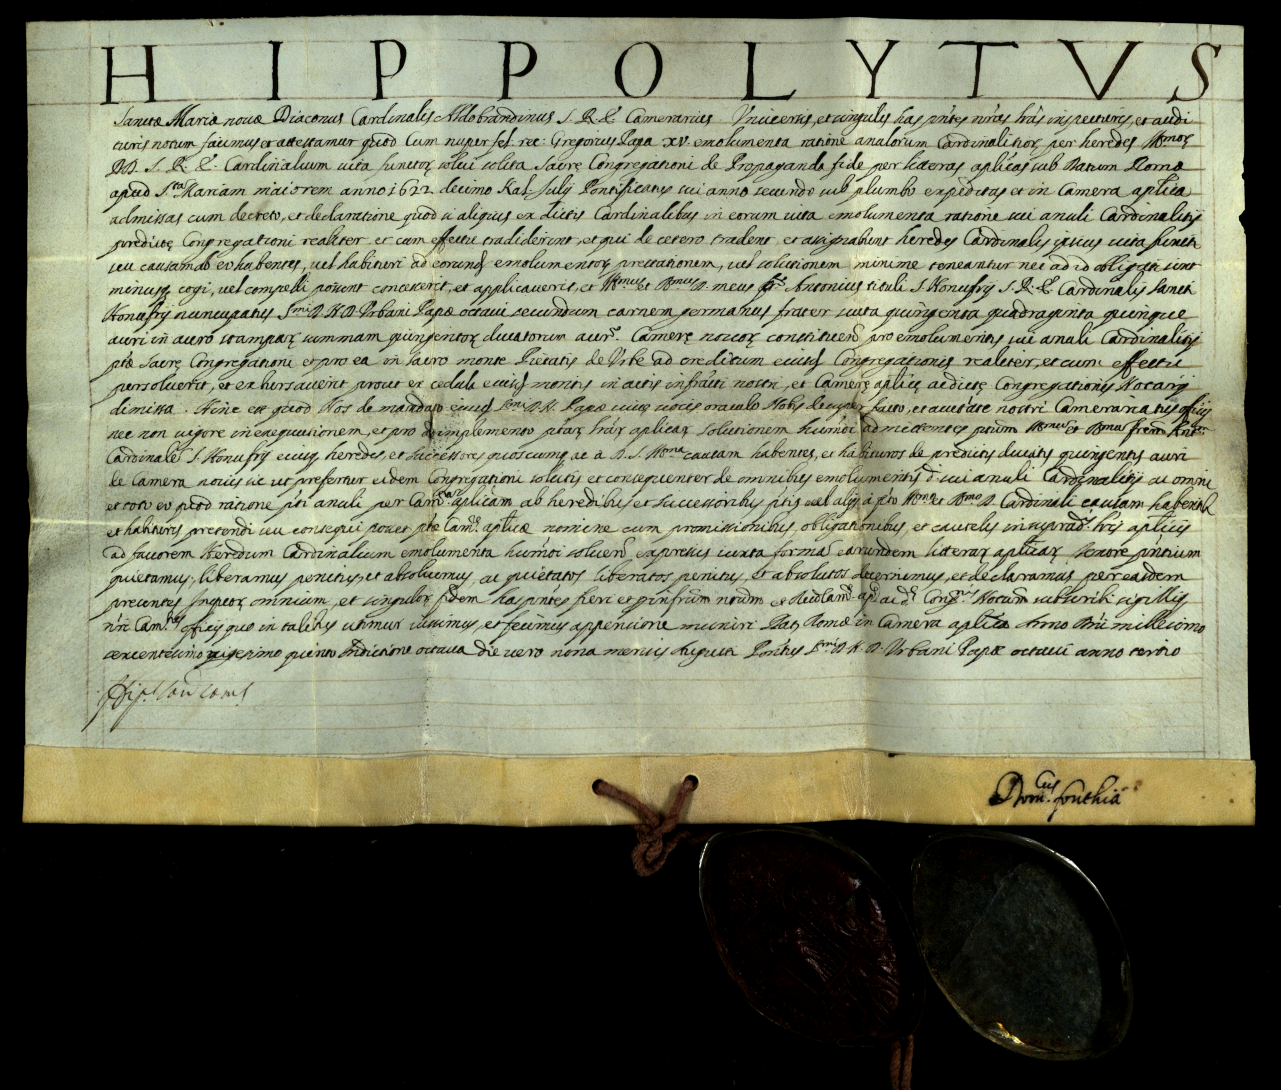 HIPPOLYTVS
Sanctæ Mariæ nouæ Diaconus Cardinalis Aldobrandinus S. R. E. Camerarius Vniuersis, et singulis has pntes nras lras inspecturis, et audi
turis notum facimus et attestamur quod Cum nuper fel: rec: Gregorius Papa XV. emolumenta ratione anulorum Cardinalitior, per heredes
S. R. E. Cardinalium vita functor, solui solita Sacrę Congregationi de Propaganda fide per literas aplicas sub Datum Romæ
apud S.tam Mariam maiorem anno 1622 decimo Kal. Julij Pontificatus sui anno secundo sub plumbo expeditas et in Camera aplica
admissas cum decreto, et declaratione quod si aliquis ex dictis Cardinalibus in eorum vita emolumenta ratione sui anuli Cardinalitij
predictę Congregationi realiter, et cum effectu tradiderint, et qui de cetero tradent, et assignabunt heredes Cardinalis ipsius vita functi
seu causam ab eo habentes, vel habituri ad eorund emolumentor prestationem, vel solutionem minime teneantur nec ad id obligati sint
minusq cogi, vel compelli possint concesserit, et applicauerit, et Illmus et Rmus D. meus fr. Antonius tituli S. Honufrij S. R. E. Cardinalis Sancti
Honufrij nuncupatus Smi D. N. D. Vrbani Papæ octaui secundum carnem germanus frater scuta quingenta quadraginta quinque
auri in auro stampar summam quingentor ducatorum aur. Camerę nouor constituen pro emolumentis sui anuli Cardinalitij
ptæ Sacrę Congregationi et pro ea in sacro monte Pietatis de Vrbe ad creditum eiusd Congregationis realiter, et cum effectu
persoluerit, et exbursauerit prout ex cedula eiusd montis in actis infrati nostri, et Camerę aplicę ac dictę Congregationis Notarij
dimissa. Hinc est quod Nos de mandato eiusd Smi D. N. Papæ viuæ vocis oraculo Nobis desuper facto, et auctate nostri Camerariatus officij
nec non vigore in exequutionem, et pro adimplemento ptar lrar aplicar solutionem humoi admittentes ptum Illmum et Rmum frem Ant.
Cardinale S. Honufrij eiusq heredes, et successores quoscumq ac à D. S. Illma causam habentes, et habituros de predictis ducatis quingentis auri
de Camera nouis sic ut prefertur eidem Congregationi solutis et consequenter de omnibus emolumentis d. sui anuli Cardinalitij ac omni
et toto eo quod ratione pti anuli per Cam aplicam ab heredibus et successoribus ptis vel alijs à pto Illmo et Rmo D. Cardinali causam habentib
et habituris pretendi seu consequi posset ptæ Cam. aplicæ nomine cum promissionibus obligationibus, et cautelis in suprad. lris aplicis
ad fauorem Heredum Cardinalium emolumenta humoi soluen expressis iuxta forma earundem litterar aplicar tenore pntium
quietamus, liberamus penitus, et absoluimus, ac quietatos liberatos penitus, et absolutos decernimus, et declaramus per easdem
presentes Inquor omnium, et singulor fidem has pntes fieri et
nri Cam. officij quo in talibus vtimur iussimus, et fecimus appensione muniri Dat Romæ in Camera aplica Anno Dni millesimo
sexcentesimo vigesimo quinto Indictione octaua die vero nona mensis Augusti Pontus Smi D. N. D. Vrbani Papæ octaui anno tertio
Hip. Car Cam.
Dom.cus fonthia